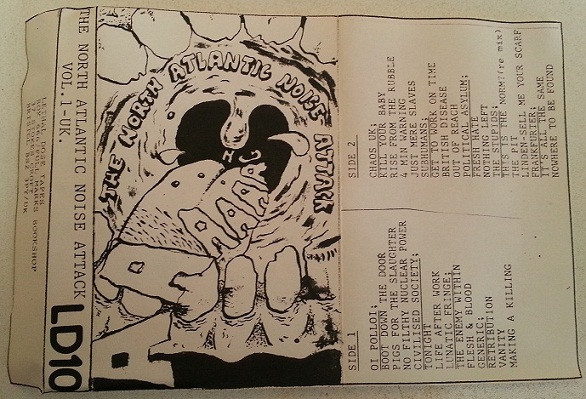 THE NORTH ATLANTIC NOISE ATTACK
VOL.1-UK.
LD10
LETHAL DOSE TAPES
BOOKSHOP
THE NORTH ATLANTIC NOISE ATTACK
SIDE 1
OI POLLOI;
BOOT DOWN THE DOOR
PIGS FOR THE SLAUGHTER
NO FILTHY NUCLEAR POWER
CIVILISED SOCIETY;
TONIGHT
LIFE AFTER WORK
LUNATIC FRINGE;
THE ENEMY WITHIN
FLESH & BLOOD
GENERIC;
RETRIBUTION
VANITY
MAKING A KILLING
SIDE 2
CHAOS UK;
KILL YOUR BABY
RISE FROM THE RUBBLE
4 MIN WARNING
JUST MERE SLAVES
SUBHUMANS;
GET TO WORK ON TIME
BRITISH DISEASE
OUT OF REACH
POLITICAL ASYLUM;
FRESH HATE
NOTHING LEFT
THE STUPIDS;
THE NORM?(re mix)
THE PIT
LINDEN-SELL ME YOUR SCARF
FRANKFURTER;
IT'S ALL THE SAME
NOWHERE TO BE FOUND